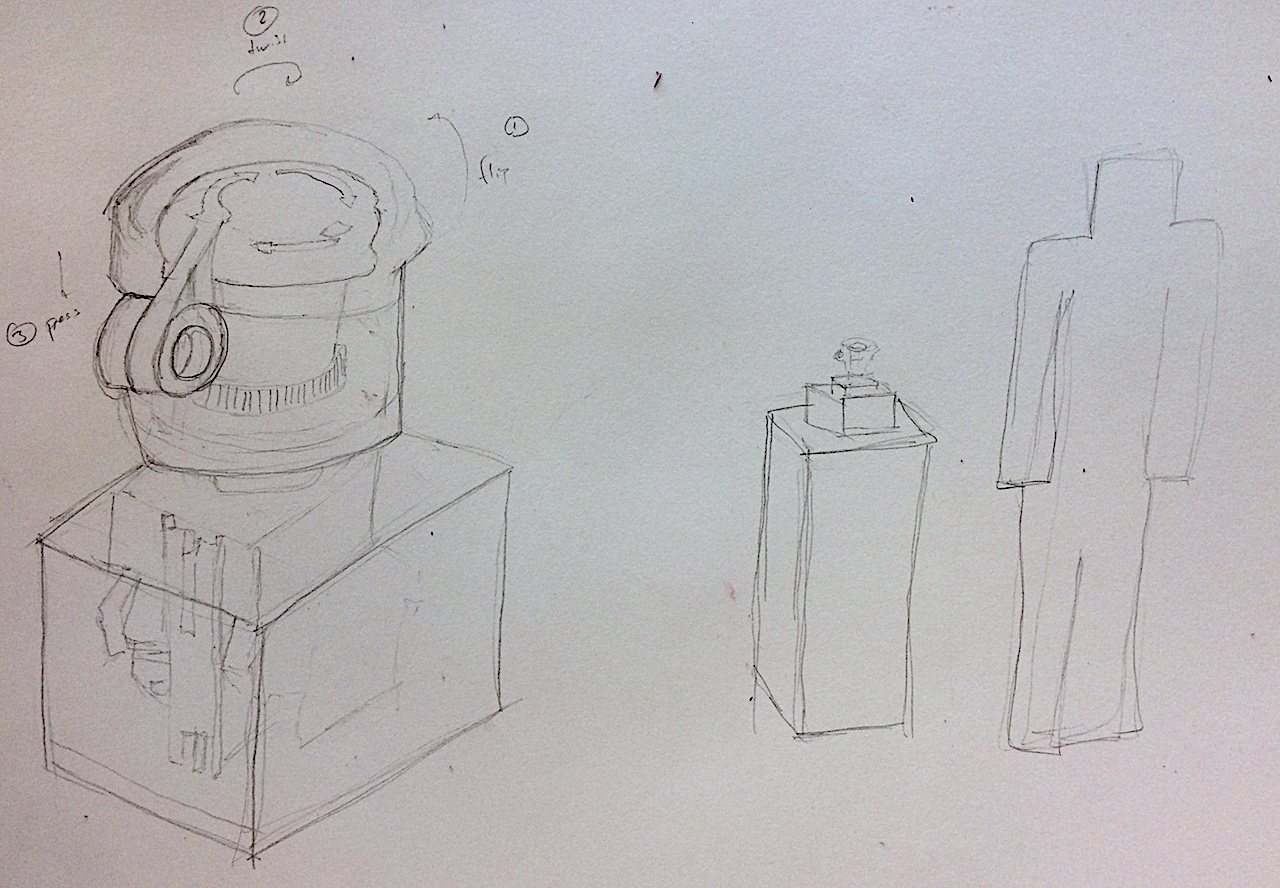 ②
twist
①
flip
③ press